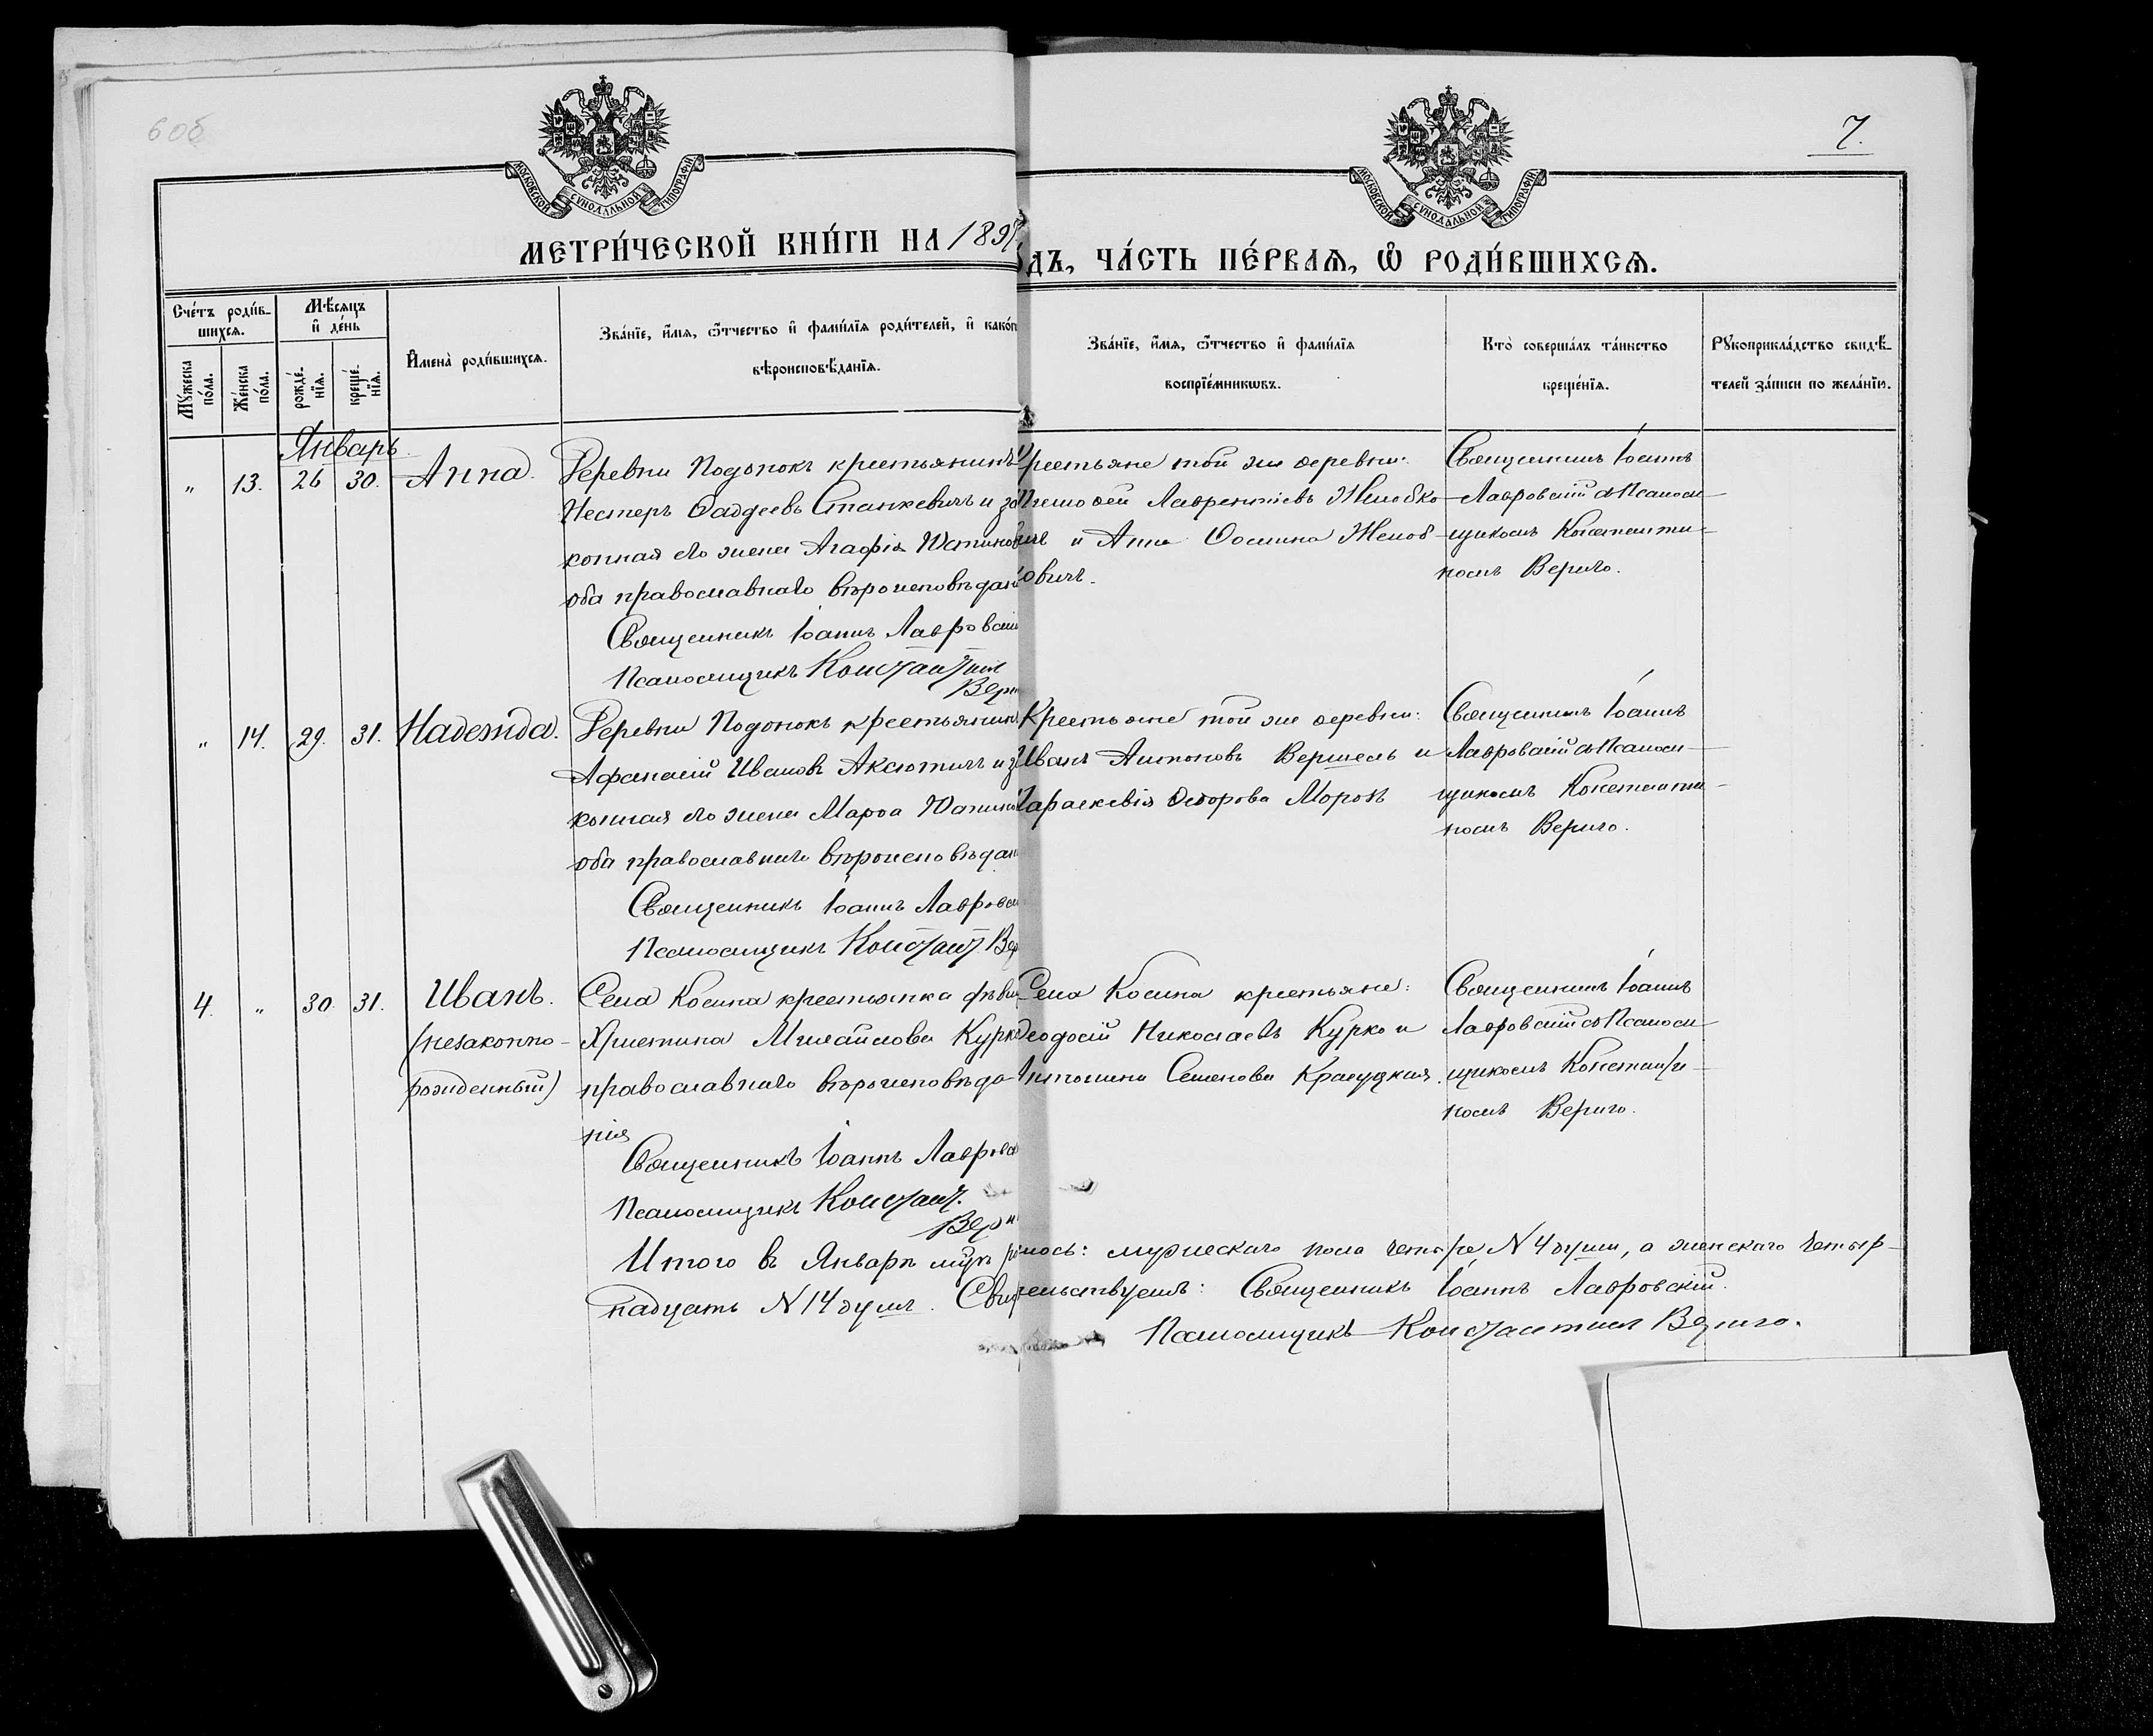 6 об
7.
МОСКОВСКОЙ СѴНОДАЛЬНОЙ ТИПОГРАФІИ
МОСКОВСКОЙ СѴНОДАЛЬНОЙ ТИПОГРАФІИ
МЕТРИ́ЧЕСКОЙ КНИ́ГИ НА 1897
ДЪ, ЧА́СТЬ ПЕ́РВАѦ, Ѡ҆ РОДИ́ВШИХСѦ.
Сче́тъ роди́в-
шихсѧ.
Мꙋ́жеска по́ла.
Же́нска по́ла.
Мѣ́сѧцъ
и҆ де́нь
рожде́-
нїѧ.
креще́-
нїѧ.
И҆мена̀ роди́вшихсѧ.
Зва́нїе, и҆́мѧ, ѻ҆́тчество и҆ фами́лїѧ роди́телей, и҆ како́г
вѣроисповѣ́данїѧ.
Зва́нїе, и҆́мѧ, ѻ҆́тчество и҆ фами́лїѧ
воспрїе́мникѡвъ.
Кто̀ соверша́лъ та́инство
креще́нїѧ.
Рꙋкоприкла́дство свидѣ́-
телей за́писи по жела́нїю.
Январь.
" 13. 26 30. Анна.
Деревни Подонокъ крестьянинъ
Нестеръ Фаддеевъ Станкевичъ и за
конная его жена Агафія
оба православнаго вѣроисповѣдані
Священникъ Іоаннъ Лавровскі
Псаломщикъ Константинъ
Вери
Крестьяне той же деревни:
Тимофей Лаврентіевъ Жлобко
и Анна Фомина Жлоб-
овичъ.
Священникъ Іоаннъ
Лавровскій съ Псаломъ-
щикомъ Константи-
номъ Вериго.
" 14. 29. 31. Надежда.
Деревни Подонокъ крестьянин
Афанасій Ивановъ Аксютичъ и за
конная его жена Марфа
оба православнаго вѣроисповѣдан
Священникъ Іоаннъ Лавровск
Псаломщикъ Констант. Вер
Крестьяне той же деревни:
Иванъ Антоновъ Вершель и
Параскевія Ѳедорова Морозъ
Священникъ Іоаннъ
Лавровскій съ Псаломъ-
щикомъ Константи-
номъ Вериго.
4. " 30. 31. Иванъ.
(незаконно-
рожденный)
Села Косина крестьянка дѣви
Христина Михайлова Курко
православнаго вѣроисповѣда-
нія
Священникъ Іоаннъ Лавровск
Псаломщикъ Констант.
Вери
Села Косина крестьяне:
Ѳеодосій Николаевъ Курко и
Антонина Семенова Красуцкая.
Священникъ Іоаннъ
Лавровскій съ Псаломъ-
щикомъ Константи-
номъ Вериго.
Итого въ Январѣ м-цѣ родилось: мужескаго пола четыре N 4 души, а женскаго четыр-
надцать N 14 душъ. Свидетельствуемъ: Священникъ Іоаннъ Лавровскій.
Псаломщикъ Константинъ Вериго.